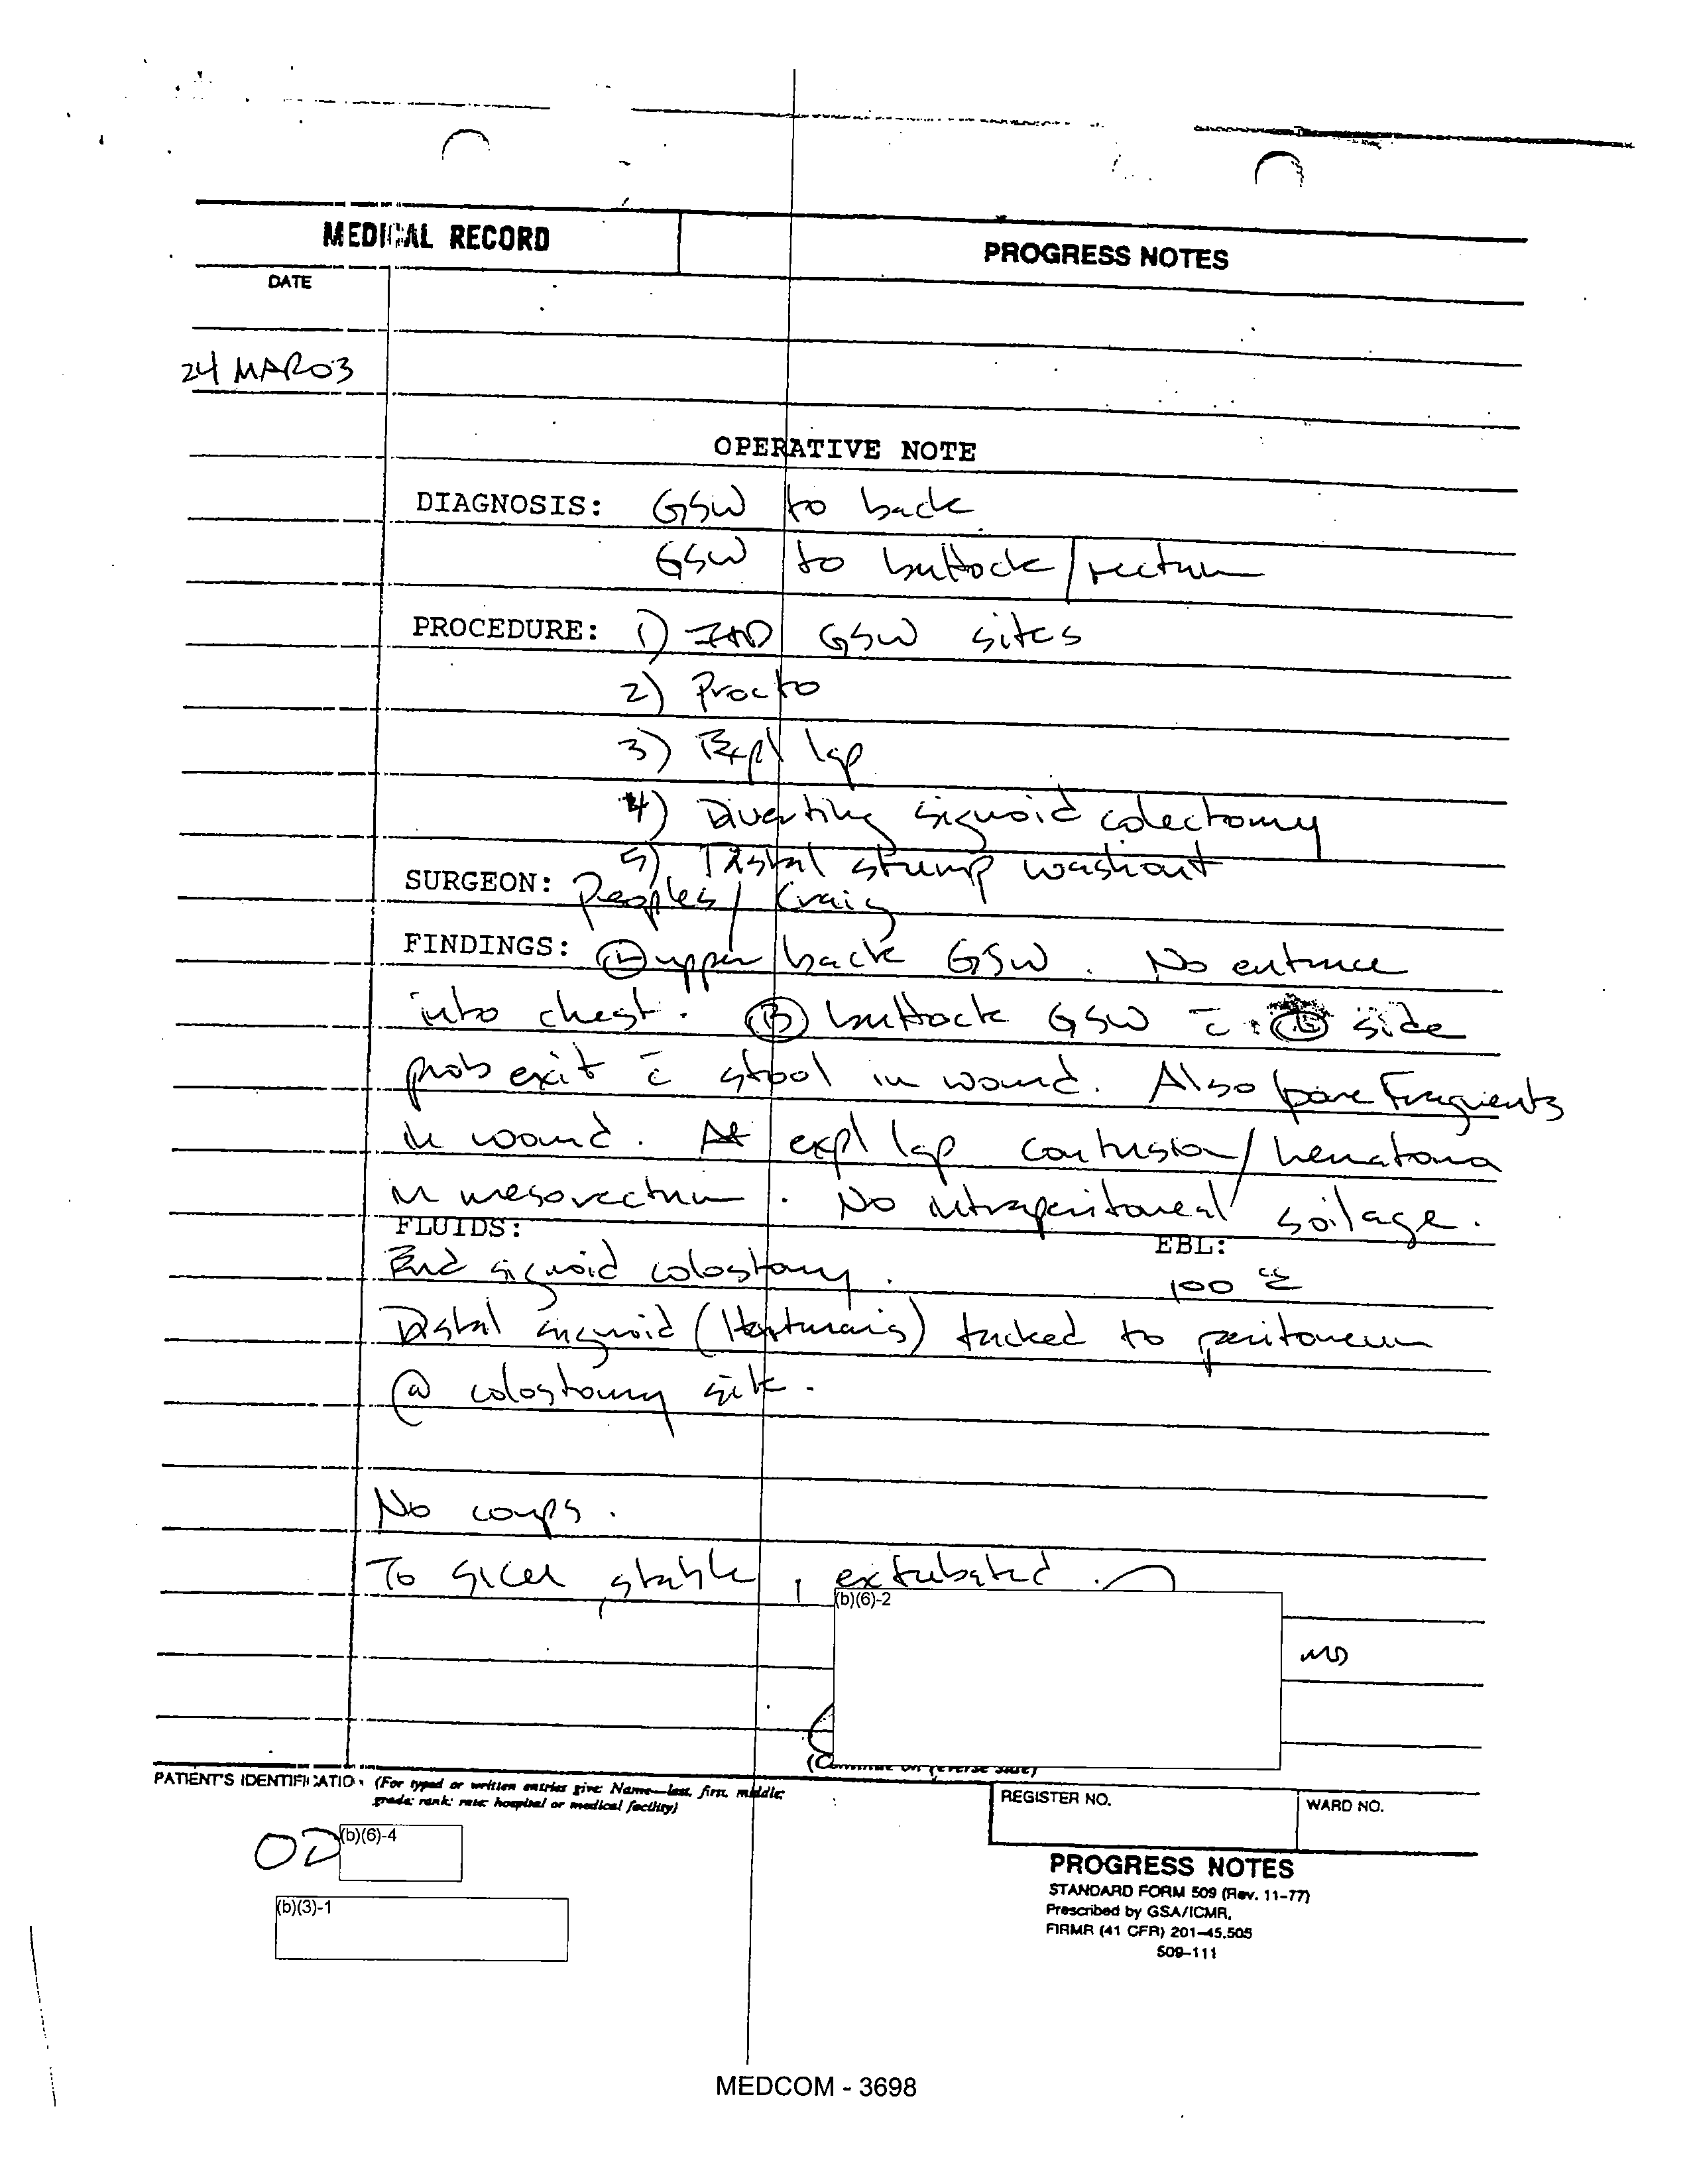 MEDICAL RECORD
PROGRESS NOTES
DATE
24 MAR 03
OPERATIVE NOTE
DIAGNOSIS: GSW to back
GSW to buttock/rectum
PROCEDURE: 1) I&D GSW sites
2) Procto
3) Expl lap
4) Diverting sigmoid colectomy
5) Distal stump washout
SURGEON: Peoples/Craig
FINDINGS: Ⓛ upper back GSW. No entrance
into chest. Ⓑ buttock GSW c̄ side
prob exit c̄ stool in wound. Also bone Fragments
in wound. At expl lap contusion/hematoma
in mesorectum. No intraperitoneal soilage.
FLUIDS:
EBL:
End sigmoid colostomy.
100 cc
Distal sigmoid (Hartman's) tacked to peritoneum
@ colostomy site.
No comps.
To SICU, stable, extubated.
(b)(6)-2
MD
(Continue on reverse side)
PATIENT'S IDENTIFICATION (For typed or written entries give: Name—last, first, middle;
grade; rank; rate; hospital or medical facility)
REGISTER NO.
WARD NO.
OD (b)(6)-4
(b)(3)-1
PROGRESS NOTES
STANDARD FORM 509 (Rev. 11-77)
Prescribed by GSA/ICMR,
FIRMR (41 CFR) 201-45.505
509-111
MEDCOM - 3698